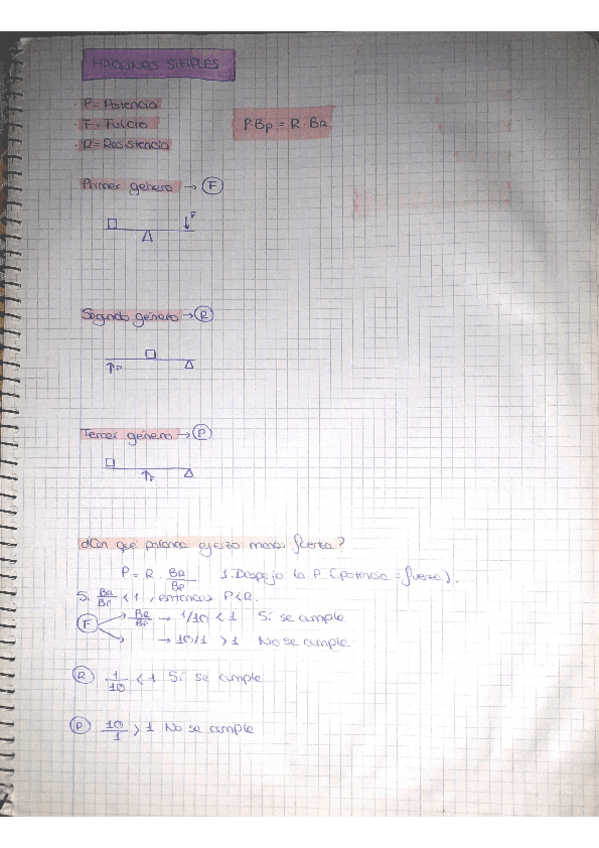 MAQUINAS SIMPLES
· P = Potencia
· F = Fulcro
P·Bp = R·BR
· R = Resistencia
Primer género → F
F
Segundo género → R
P
Tercer género → P
P
¿Con qué palanca ejerzo menos fuerza?
P = R · BR/BP 1. Despejo la P (potencia = fuerza).
Si BR/BP < 1, entonces P<R.
F BR/BP → 1/10 < 1 Sí se cumple
→ 10/1 > 1 No se cumple
R 1/10 < 1 Sí se cumple
P 10/1 > 1 No se cumple